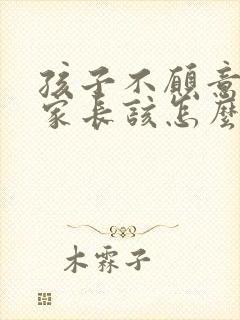 孩子不願意
家長該怎麼
木霖子